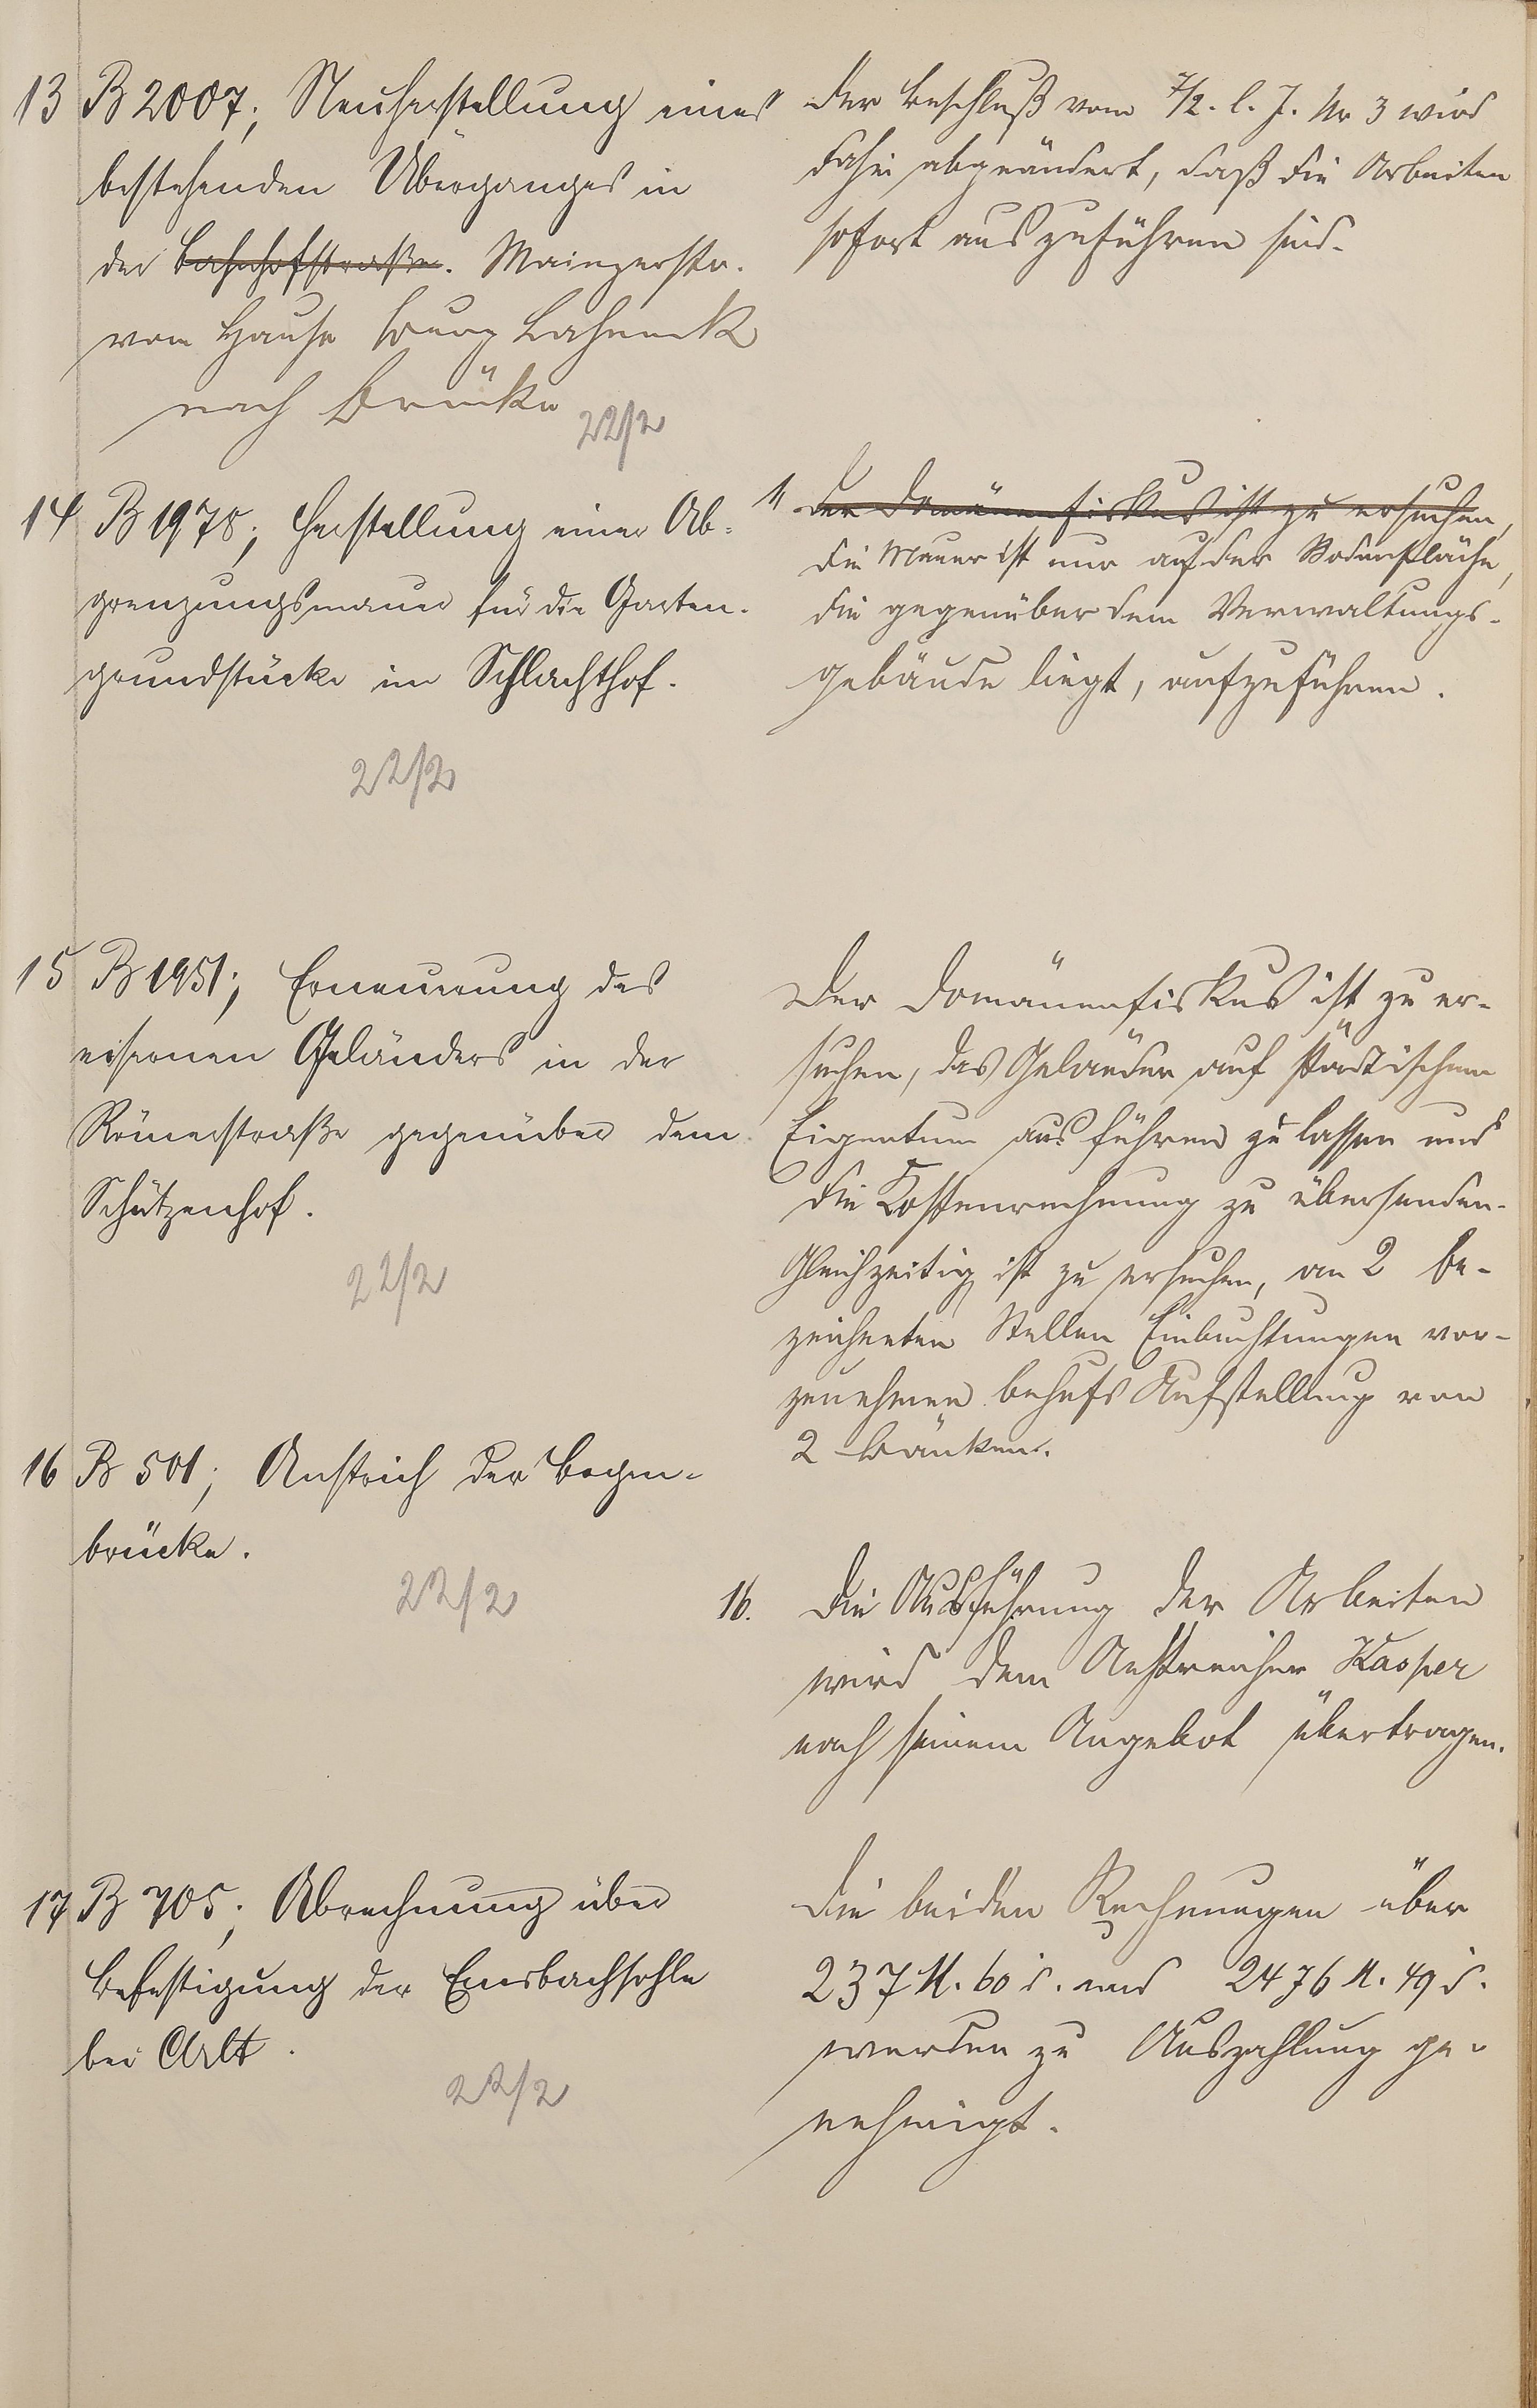 13 B 2007; Neuherstellung eines
bestehenden Überganges in
der Bahnhofstraße. Mainzerstr.
vom Hause Lahneck
nach Brücke
22/2
Der Beschluß vom 7/2. l. J. Nr 3 wird
dahin abgeändert, daß die Arbeiten
sofort auszuführen sind.
14 B 1978; Herstellung einer Ab-
grenzungsmauer für die Garten-
grundstücke im Schlachthof.
22/2
Der Domänenfiskus ist zu ersuchen,
Die Mauer ist nur auf der Bodenfläche,
die gegenüber dem Verwaltungs-
gebäude liegt, aufzuführen.
15 B 1951; Erneuerung des
eisernen Geländers in der
Römerstraße gegenüber dem
Schützenhof.
22/2
Der Domänenfiskus ist zu er-
suchen, das Geländer auf städtischem
Eigentum ausführen zu lassen und
die Kostenrechnung zu übersenden.
Gleichzeitig ist zu ersuchen, an 2 be-
zeichneten Stellen Einbuchtungen vor-
zunehmen behufs Aufstellung von
2 Bänken.
16 B 501; Anstrich der Bogen-
brücke.
22/2
16. Die Ausführung der Arbeiten
wird dem Anstreicher Kasper
nach seinem Angebot übertragen.
17 B 705; Abrechnung über
Befestigung der Emsbachsohle
bei Arlt.
22/2
Die beiden Rechnungen über
237 M. 60 d. und 2476 M. 49 d.
werden zu Auszahlung ge-
nehmigt.